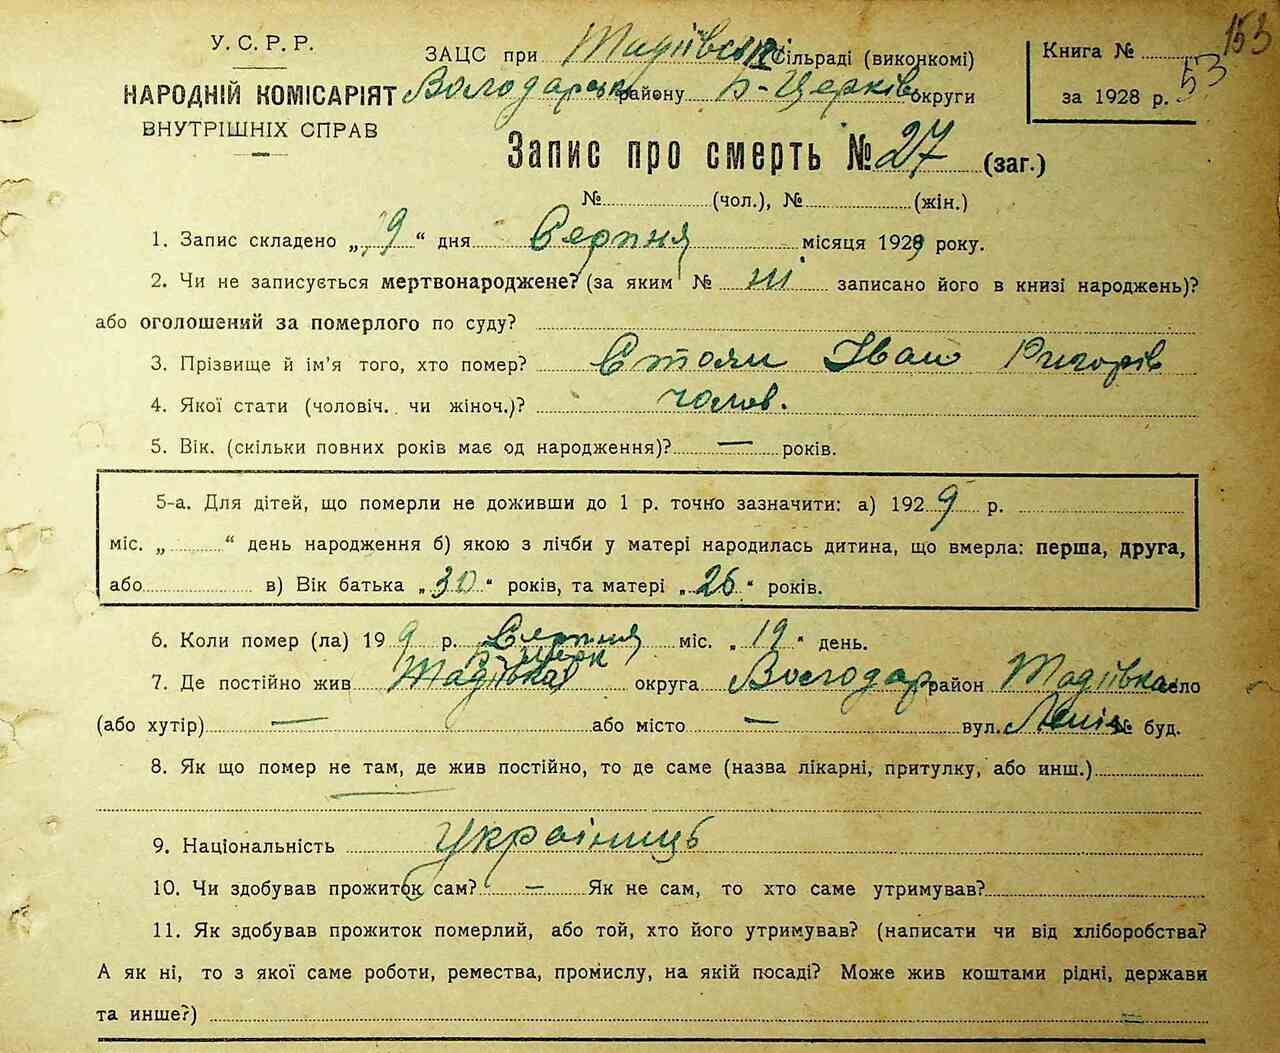 153
У. С. Р. Р.
ЗАЦС при Тадіївськ Сільраді (виконкомі)
Книга № 53
НАРОДНІЙ КОМІСАРІЯТ
Володарськ району Б-Церків округи
за 1928 р.
ВНУТРІШНІХ СПРАВ
Запис про смерть № 27 (заг.)
№ (чол.), № (жін.)
1. Запис складено „19“ дня Серпня місяця 1929 року.
2. Чи не записується мертвонароджене? (за яким № ні записано його в книзі народжень)?
або оголошений за померлого по суду?
3. Прізвище й ім’я того, хто помер? Стоян Іван Григорів
4. Якої стати (чоловіч. чи жіноч.)? чолов.
5. Вік. (скільки повних років має од народження)? — років.
5-а. Для дітей, що померли не доживши до 1 р. точно зазначити: а) 1929 р.
міс. „ “ день народження б) якою з лічби у матері народилась дитина, що вмерла: перша, друга,
або в) Вік батька „30“ років, та матері „26“ років.
6. Коли помер (ла) 199 р. Серпня міс. „19“ день.
7. Де постійно жив Тадіївка округа Володар район Тадіївка село
(або хутір) — або місто — вул. Лені № буд.
8. Як що помер не там, де жив постійно, то де саме (назва лікарні, притулку, або инш.)
9. Національність Українець
10. Чи здобував прожиток сам? — Як не сам, то хто саме утримував?
11. Як здобував прожиток померлий, або той, хто його утримував? (написати чи від хліборобства?
А як ні, то з якої саме роботи, ремества, промислу, на якій посаді? Може жив коштами рідні, держави
та инше?)